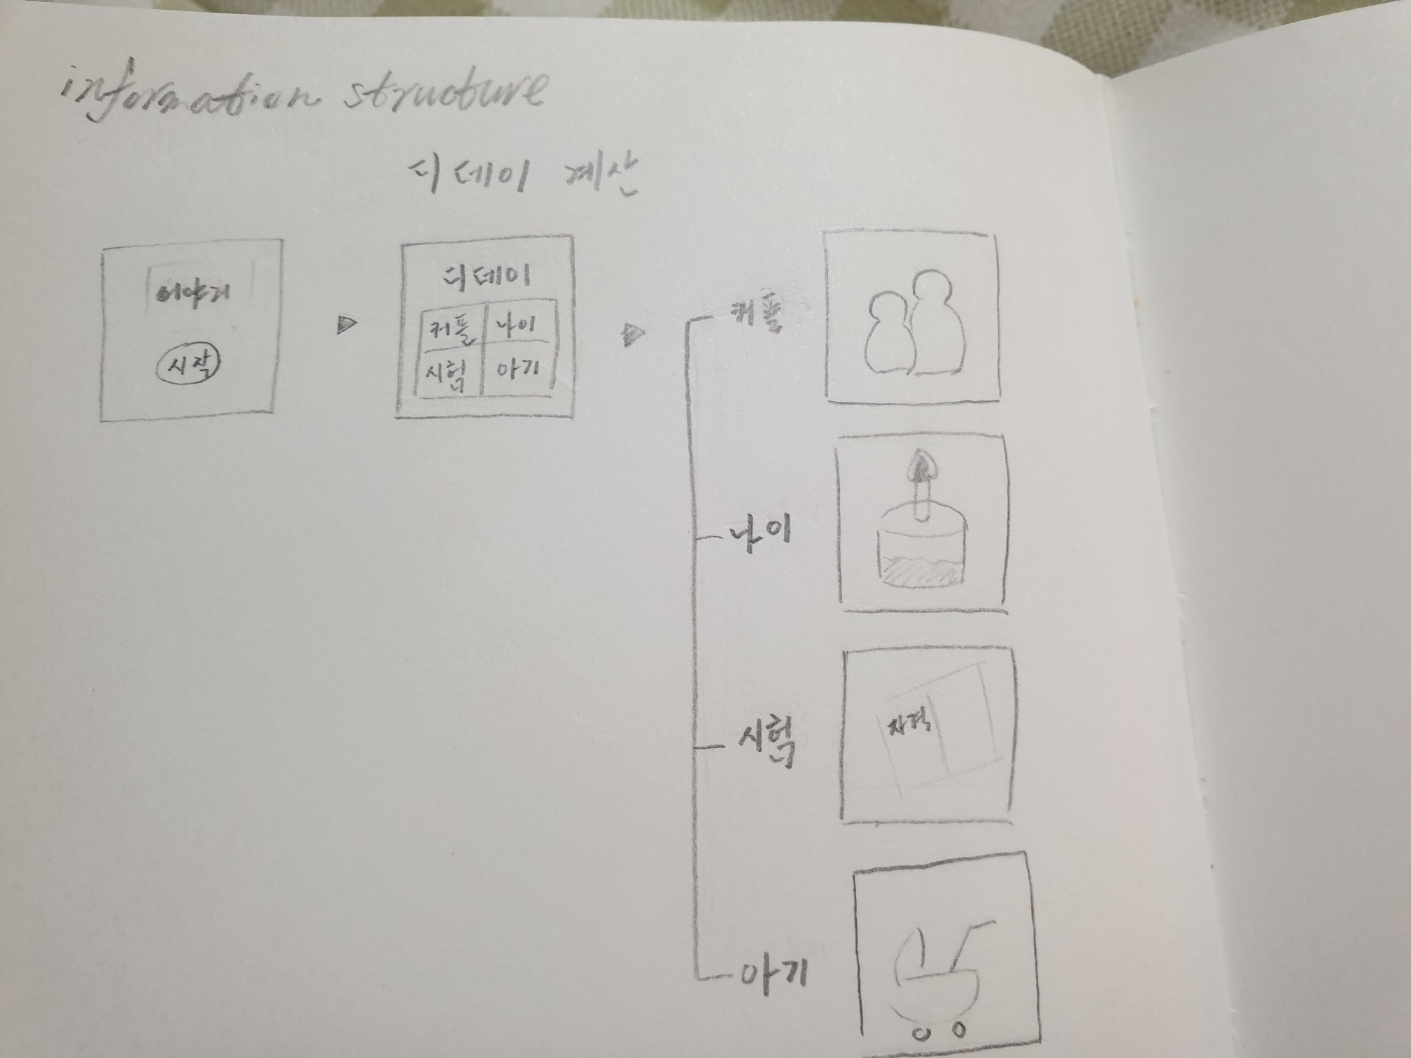 information structure
디데이 계산
이야기
시작
디데이
커플 나이
시험 아기
커플
나이
시험
자격
아기